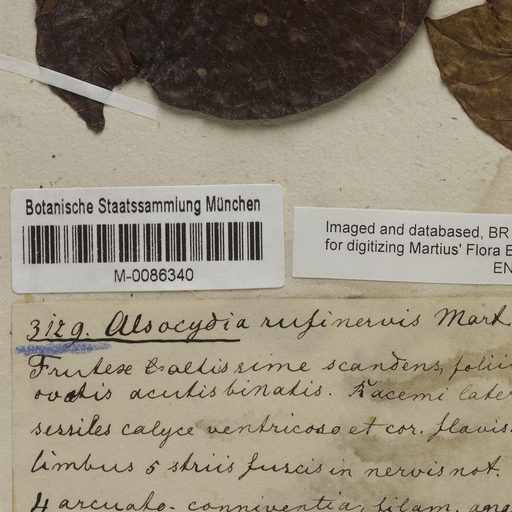 Botanische Staatssammlung München
M-0086340
Imaged and databased, BR
for digitizing Martius' Flora B
EN
3129. Alsocydia rufinervis Mart
Frutex altissime scandens, folii
ovatis acutis binatis. Racemi later
sessiles calyce ventricoso et cor. flavis.
limbus 5 striis fuscis in nervis not.
4 arcuato-conniventia, filam. ang